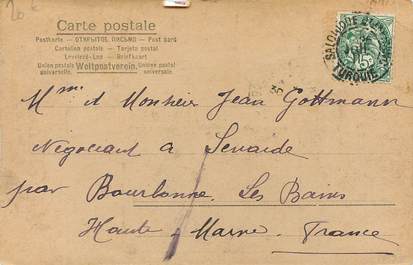 20 €
Carte postale
Postkarte — ОТКРЫТОЕ ПИСЬМО — Post card
Cartolina postale — Tarjeta postal
Levelező-Lap — Briefkaart
Union postale universelle. Weltpostverein. Unione postale universale.
SALONIQUE
TURQUIE
5
Mme et Monsieur Jean Gottmann
Négociant à Senaide
par Bourbonne. Les Bains
Haute-Marne. France